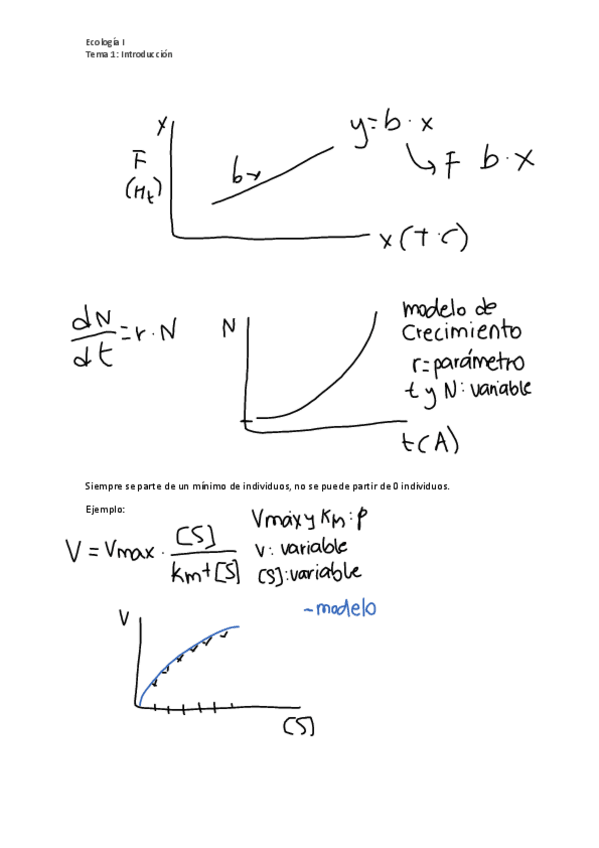 Ecología I
Tema 1: Introducción
y
y=b·x
F
(Mt)
b
F b·x
x (T·C)
dN/dt = r·N
N
modelo de
Crecimiento
r=parámetro
t y N: variable
t(A)
Siempre se parte de un mínimo de individuos, no se puede partir de 0 individuos.
Ejemplo:
V = Vmax · [S] / Km+[S]
Vmáx y Km: p
v: variable
[S]: variable
~modelo
V
[S]